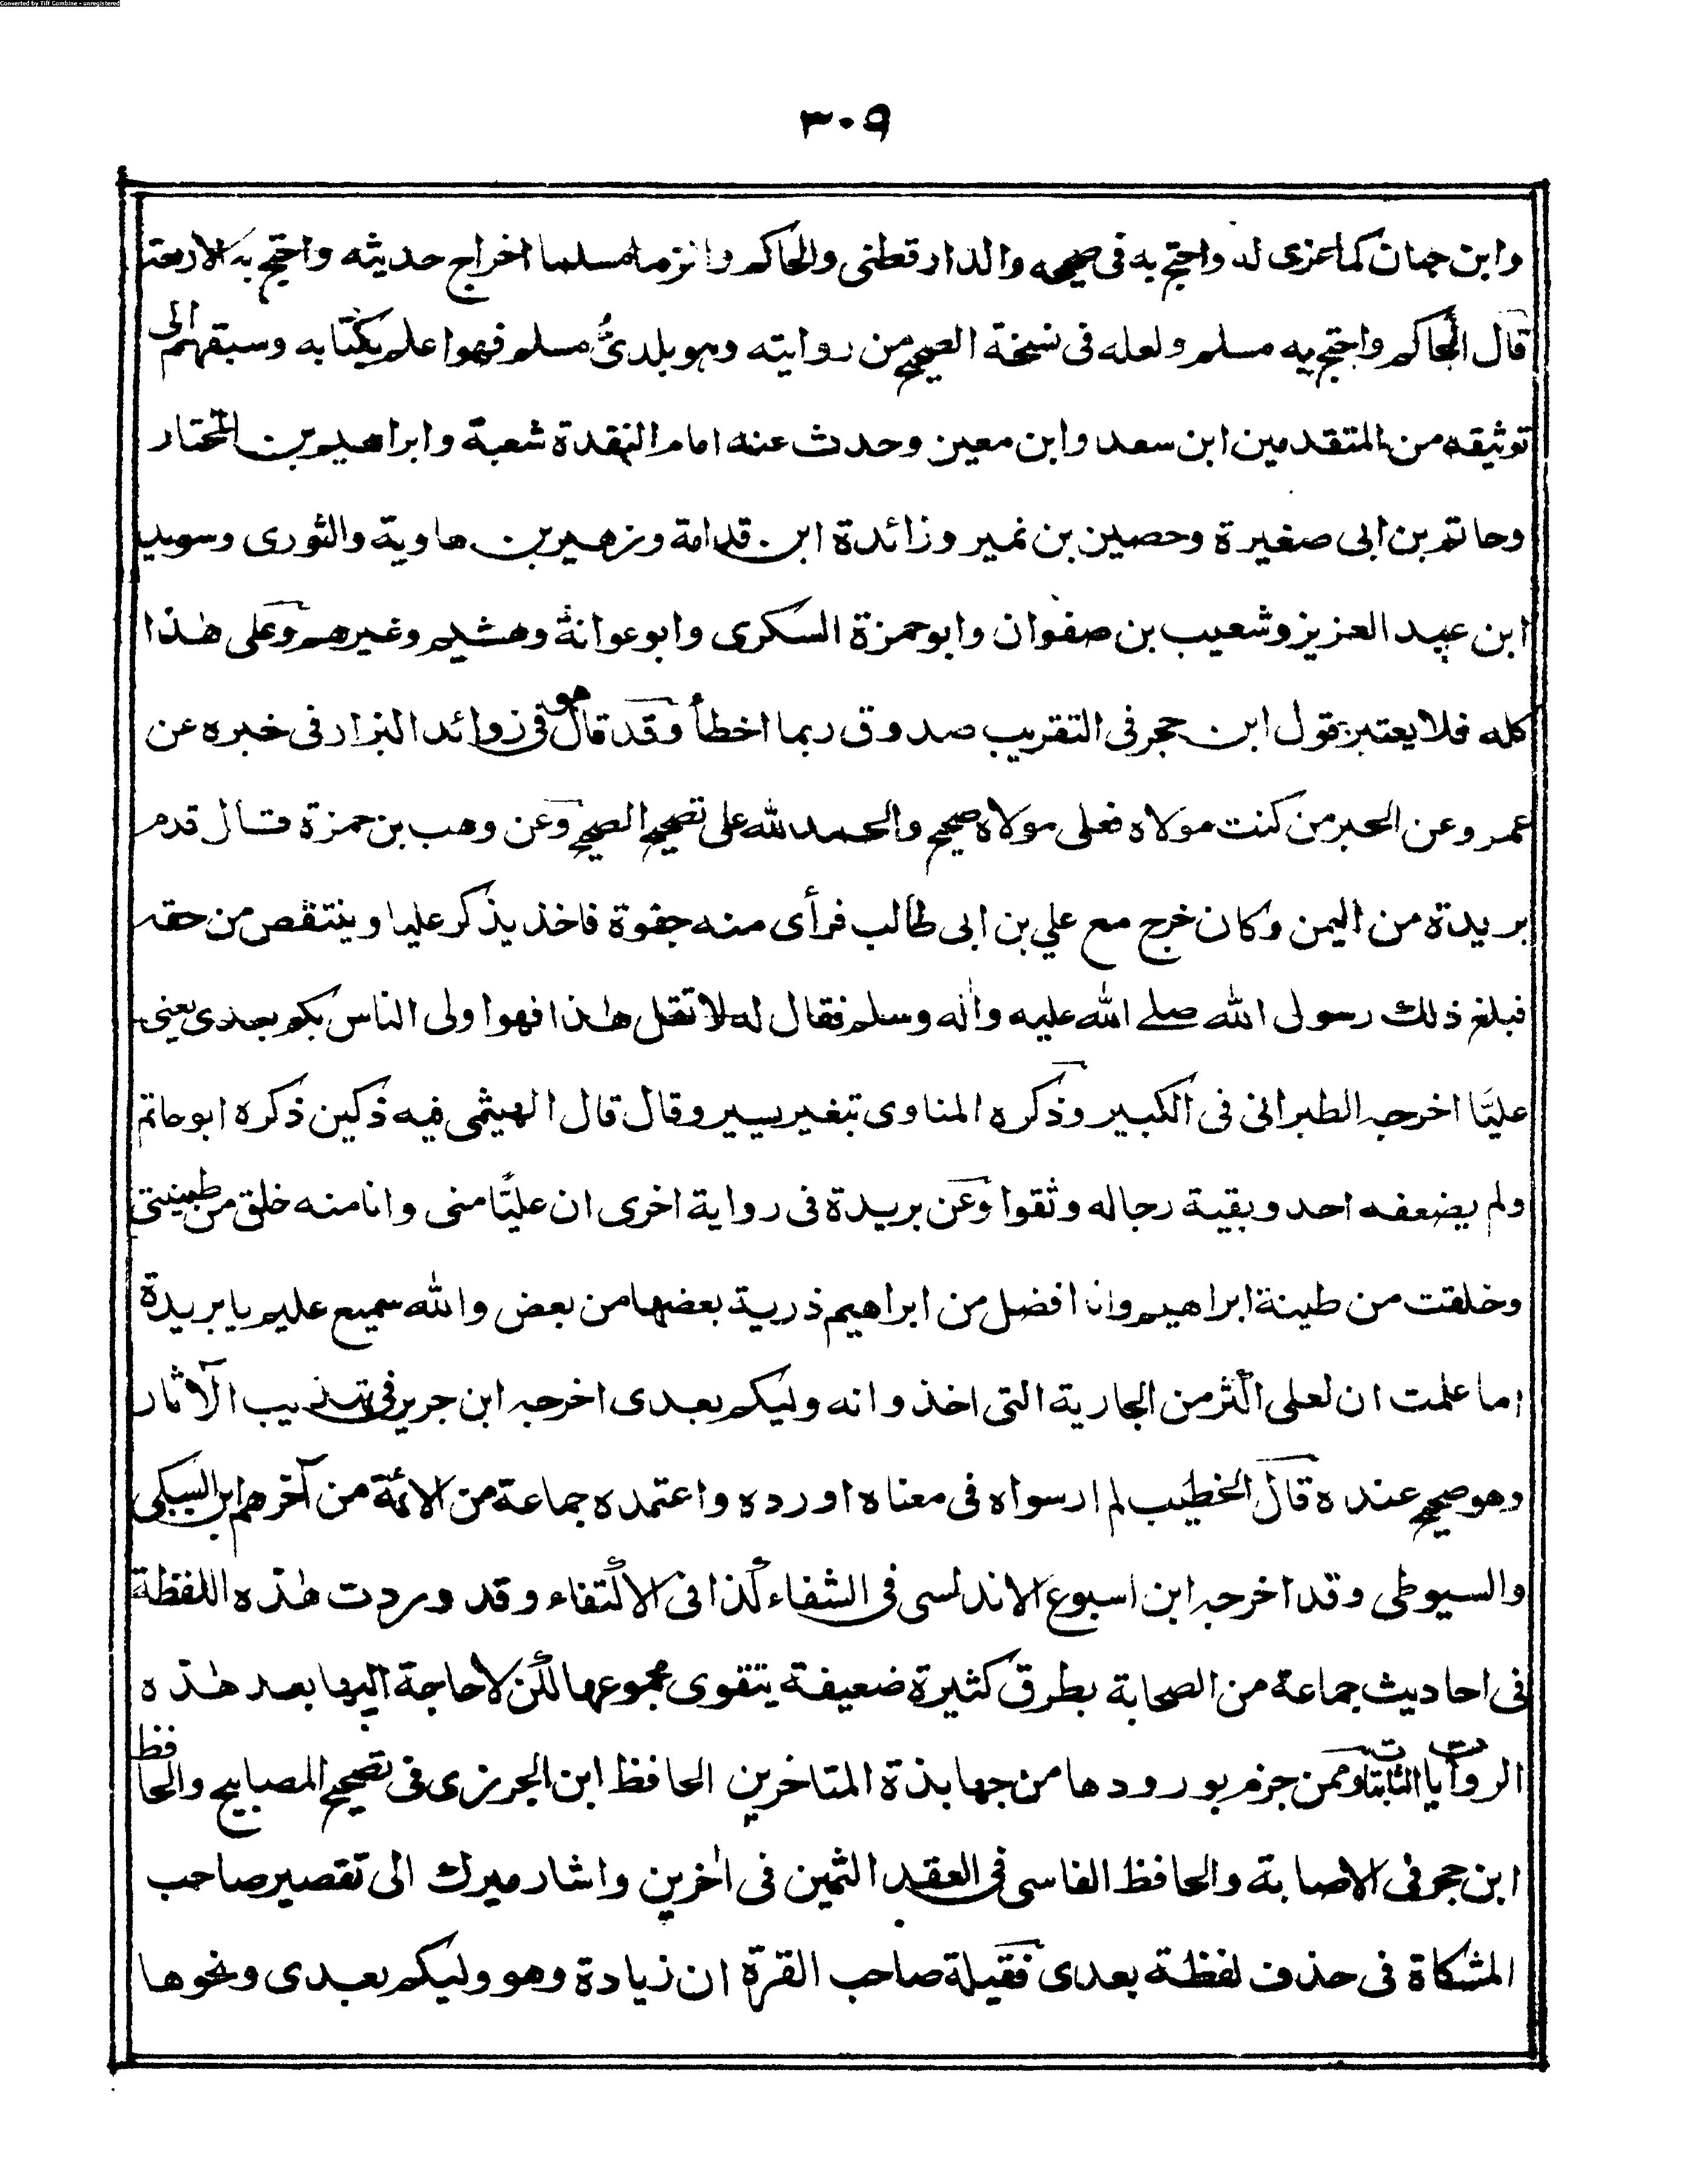 Converted by Tiff Combine - unregistered
٣٠٩
وابن حبان كما عزى له واحتج به فى صحيحه والدارقطنى والحاكم والزما مسلما اخراج حديثه واحتج به الاربعة
قال الحاكم واحتج به مسلم ولعله فى نسخة الصحيح من روايته وهو بلدىُّ مسلم فهوا علم بكتابه وسبقهم الى
توثيقه من المتقدمين ابن سعد وابن معين وحدث عنه امام النقدة شعبة وابراهيم بن المختار
وحاتم بن ابى صغيرة وحصين بن نمير وزائدة ابن قدامة وزهير بن معاوية والثورى وسويد
ابن عبد العزيز وشعيب بن صفوان وابو حمزة السكرى وابو عوانة وهشيم وغيرهم وعلى هذا
كله فلا يعتبر بقول ابن حجر فى التقريب صدوق ربما اخطأ وقد قال هو فى زوائد البزار فى خبره عن
عمرو عن الحبر من كنت مولاه فعلى مولاه صحيح والحمد لله على تصحيح الصحيح وعن وهب بن حمزة قال قدم
بريدة من اليمن وكان خرج مع علي بن ابى طالب فرأى منه جفوة فاخذ يذكر عليا وينتقص من حقه
فبلغ ذلك رسول الله صلے الله عليه واٰله وسلم فقال له لا تقل هٰذا فهوا ولى الناس بكم بعدى يعنى
عليًّا اخرجه الطبرانى فى الكبير وذكره المناوى بتغير يسير وقال قال الهيثمى فيه ذكين ذكره ابو حاتم
ولم يضعفه احد وبقية رجاله وثقوا وعن بريدة فى رواية اخرى ان عليًّا منى وانا منه خلق من طينتى
وخلقت من طينة ابراهيم وانا افضل من ابراهيم ذرية بعضها من بعض والله سميع عليم يا بريدة
اما علمت ان لعلى اكثر من الجارية التى اخذ وانه وليكم بعدى اخرجه ابن جرير فى تهذيب الآثار
وهو صحيح عنده قال الخطيب لم ار سواه فى معناه اورده واعتمده جماعة من الائمة من آخرهم ابن السبكى
والسيوطى وقد اخرجه ابن اسبوع الاندلسى فى الشفاء كذا فى الاكتفاء وقد وردت هٰذه اللفظة
فى احاديث جماعة من الصحابة بطرق كثيرة ضعيفة يتقوى مجموعها لكن لا حاجة اليها بعد هٰذه
الروايات الثابتات وممن جزم بورودها من جهابذة المتاخرين الحافظ ابن الجزرى فى تصحيح المصابيح والحافظ
ابن حجر فى الاصابة والحافظ الفاسى فى العقد الثمين فى اٰخرين واشار ميرك الى تقصير صاحب
المشكاة فى حذف لفظة بعدى فقيلة صاحب القرة ان زيادة وهو وليكم بعدى ونحوها